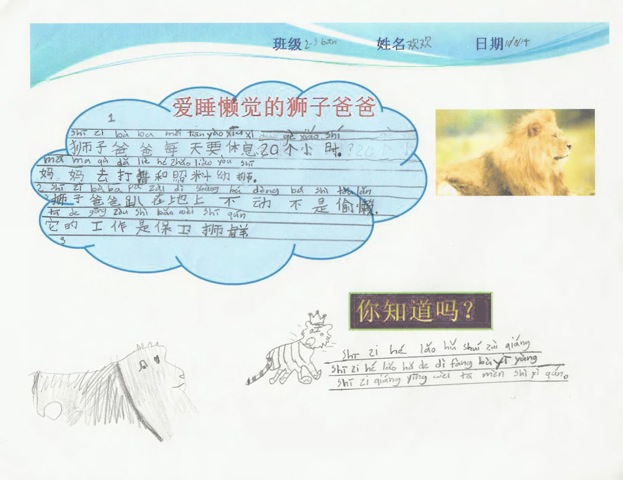 班级 2-3 ban 姓名 欢欢 日期
爱睡懒觉的狮子爸爸
1
shī zi bà ba měi tiān yào xiū xi gè xiǎo shí
狮子爸爸每天要休息20个小时。
mā ma qù dǎ liè hé zhào liào yòu shī
妈妈去打猎和照料幼狮。
2 shī zi bà ba pā zài dì shàng bú dòng bú shì tōu lǎn
狮子爸爸趴在地上不动不是偷懒。
tā de gōng zuò shì bǎo wèi shī qún
它的工作是保卫狮群
3
你知道吗？
shī zi hé lǎo hǔ shuí zuì qiáng
shī zi hé lǎo hǔ de dì fāng bù yī yàng
shī zi qiáng yīng wèi tā mēn shì yī qún。